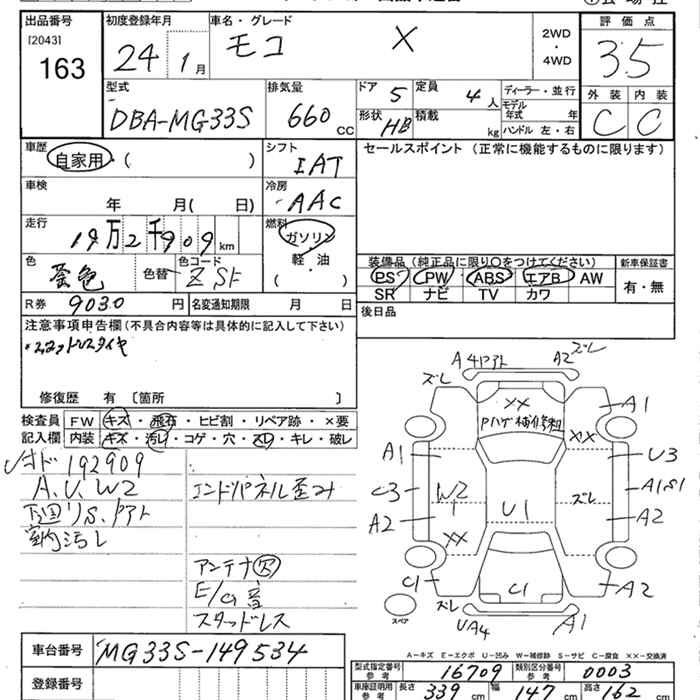 出品番号 初度登録年月 車名・グレード 評価点
[2043] 163 24年 1月 モコ X 2WD・4WD 3.5
型式 排気量 ドア 5 定員 4人 ディーラー・並行 外装 内装
DBA-MG33S 660cc 形状 HB 積載 kg モデル年式 年 C C
ハンドル 左・右
車歴 自家用・( ) シフト IAT セールスポイント(正常に機能するものに限ります)
車検 年 月( 日) 冷房 AAC
走行 19万2千909km 燃料 ガソリン・軽油・( )
色 色替 色コード ZSF
装備品(純正品に限り○をつけてください) 新車保証書
PS PW ABS エアB AW 有・無
SR ナビ TV カワ
R券 9030円 名変通知期限 月 日 後日品
注意事項申告欄(不具合内容等は具体的に記入して下さい)
修復歴 有〔箇所 〕
検査員 FW キズ・飛石・ヒビ割・リペア跡・×要
記入欄 内装 キズ・汚レ・コゲ・穴・スレ・キレ・破レ
192909
A.U.W2 エンドパネル歪み
下廻りS.
室内汚レ
アンテナ欠
E/G音
スタッドレス
A4 A2 ズレ
ズレ A1
XX
XX
A1 U3
C3 W2 ズレ A1.S1
A2 U1 A2
XX
C1 C1 A2
ズレ
スペア UA4 A1
A-キズ E-エクボ U-凹み W-補修跡 S-サビ C-腐食 XX-交換済
車台番号 MG33S-149534
登録番号
型式指定番号 参考 16709 類別区分番号 参考 0003
車庫証明用 参考 長さ 339cm 幅 147cm 高さ 162cm